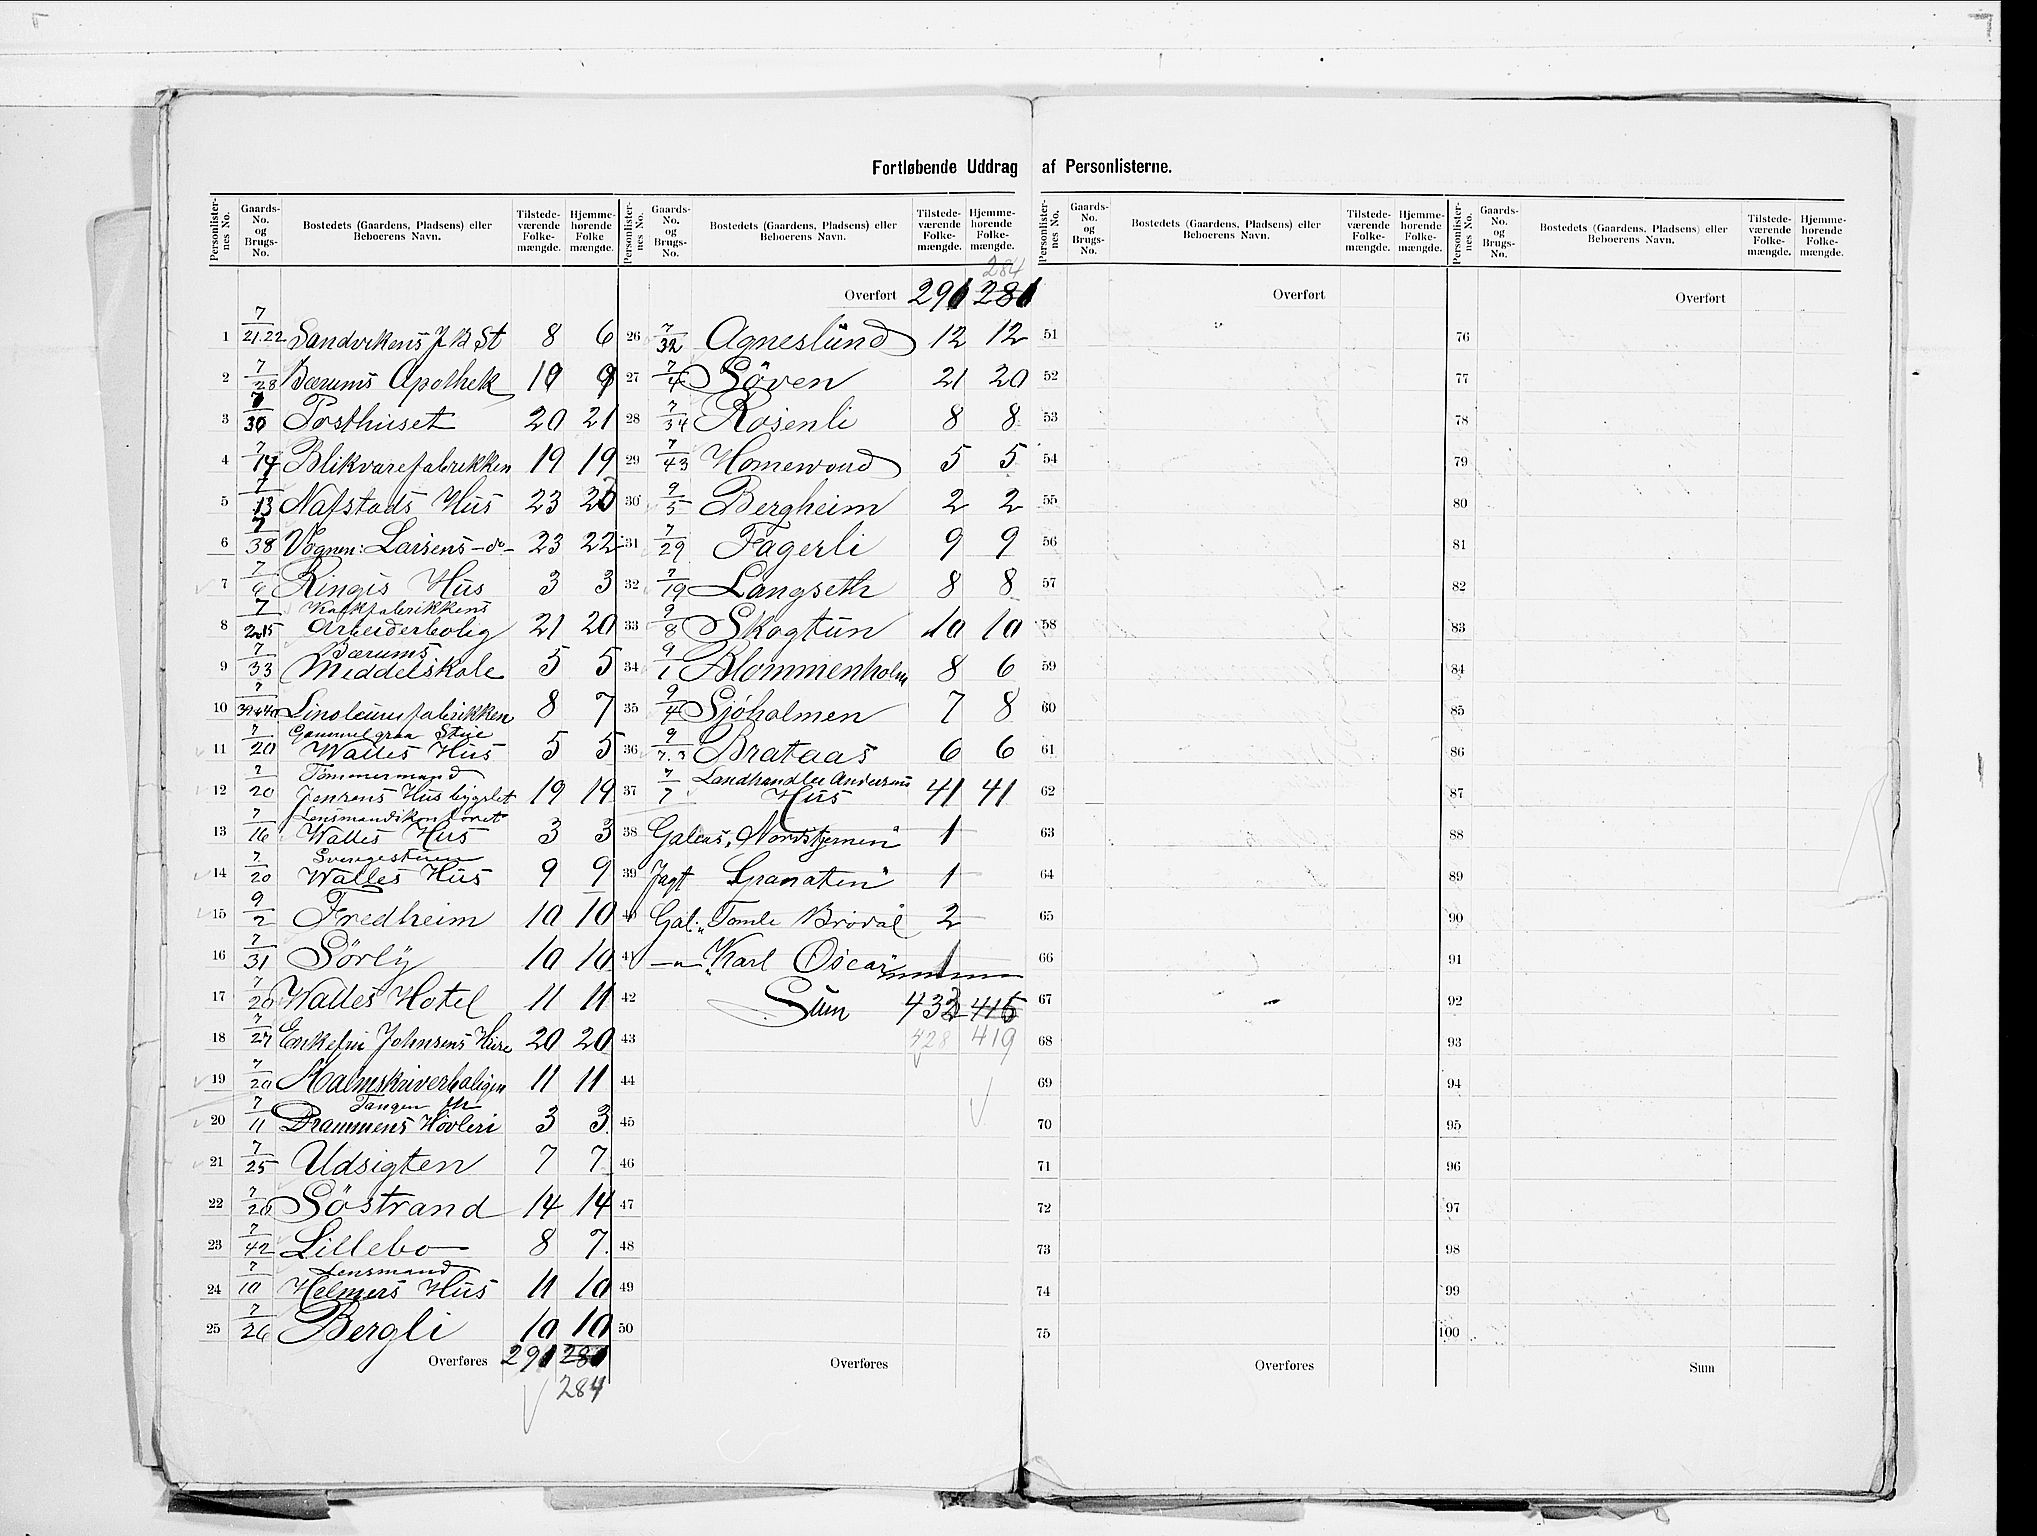 Fortløbende Uddrag af Personlisterne.
Personlister-nes No. Gaards-No. og Brugs-No. Bostedets (Gaardens, Pladsens) eller Beboerens Navn. Tilstede-værende Folke-mængde. Hjemme-hørende Folke-mængde.
1 7/21.22 Sandvikens J B St 8 6
2 7/28 Bærums Apothek 10 9
3 7/30 Posthuset 20 21
4 7/14 Blikvarefabrikken 19 19
5 7/13 Nafstads Hus 23 20
6 7/38 Vognm: Larsens -do- 23 22
7 7/6 Ringis Hus 3 3
8 7/2015 Kalkfabrikkens Arbeiderbolig 21 20
9 7/33 Bærums Meddelskole 5 5
10 7/39 40 Linoleumsfabrikken 8 7
11 7/20 Gammelgraa Stue Walles Hus 5 5
12 7/20 Tömmermand Jensens Hus bygslet 19 19
13 7/16 Lensmandskontoret Walles Hus 3 3
14 7/20 Walles Hus 9 9
15 9/2 Fredheim 10 10
16 7/31 Sörly 10 10
17 7/20 Walles Hotel 11 11
18 7/27 Enkefru Johnsens Hus 20 20
19 7/20 Malmskriverboligen 11 11
20 7/11 Tangen Drammens Hövleri 3 3
21 7/25 Udsigten 7 7
22 7/20 Söstrand 14 14
23 7/42 Lillebo 8 7
24 7/10 Lensmand Helmers Hus 11 10
25 7/26 Bergli 10 10
Overføres 291 281
284
Personlister-nes No. Gaards-No. og Brugs-No. Bostedets (Gaardens, Pladsens) eller Beboerens Navn. Tilstede-værende Folke-mængde. Hjemme-hørende Folke-mængde.
284
Overført 291 281
26 7/32 Agneslund 12 12
27 7/4 Söven 21 20
28 7/34 Rosenli 8 8
29 7/43 Homewoud 5 5
30 9/5 Bergheim 2 2
31 7/29 Fagerli 9 9
32 7/19 Langseth 8 8
33 9/8 Skogtun 10 10
34 9/1 Blommenholm 8 6
35 9/4 Sjöholmen 7 8
36 9/7.3 Brataas 6 6
37 7/7 Landhandler Andersens Hus 41 41
38 Galeas "Nordstjernen" 1
39 Jagt Granaten" 1
40 Gal: "Tomle Brödal 2
41 -"- "Karl Oscar" 1
42 Sum 432 415
43 428 419
44
45
46
47
48
49
50
Overføres
Personlister-nes No. Gaards-No. og Brugs-No. Bostedets (Gaardens, Pladsens) eller Beboerens Navn. Tilstede-værende Folke-mængde. Hjemme-hørende Folke-mængde.
Overført
51
52
53
54
55
56
57
58
59
60
61
62
63
64
65
66
67
68
69
70
71
72
73
74
75
Overføres
Personlister-nes No. Gaards-No. og Brugs-No. Bostedets (Gaardens, Pladsens) eller Beboerens Navn. Tilstede-værende Folke-mængde. Hjemme-hørende Folke-mængde.
Overført
76
77
78
79
80
81
82
83
84
85
86
87
88
89
90
91
92
93
94
95
96
97
98
99
100
Sum